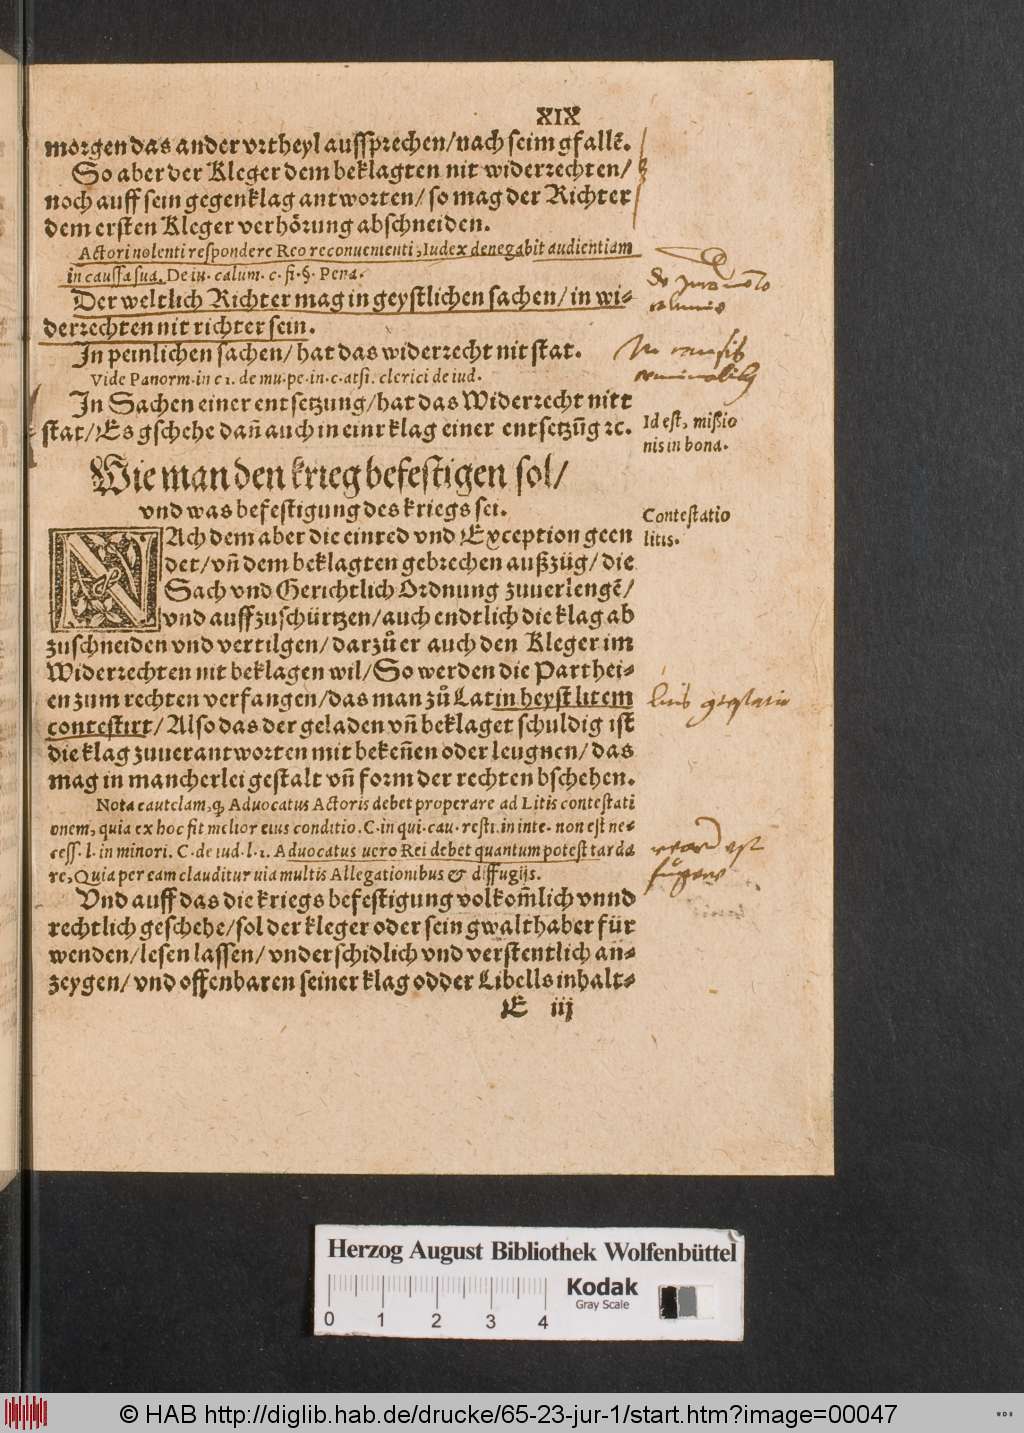 XIX
morgen das ander vrtheyl aussprechen/nach seim gfallẽ.
So aber der Kleger dem beklagten nit widerrechten/
noch auff sein gegenklag antworten/ so mag der Richter
dem ersten Kleger verhörung abschneiden.
Actori nolenti respondere Reo reconuenienti, Iudex denegabit audientiam
in caussa sua. De iu. calum. c. fi. §. Pena.
Der weltlich Richter mag in geystlichen sachen/ in wi⸗
derrechten nit richter sein.
In peinlichen sachen/ hat das widerrecht nit stat.
Vide Panorm. in c 1. de mu. pe. in. c. atsi. clerici de iud.
In Sachen einer entsetzung/hat das Widerrecht nitt
stat/Es gschehe dañ auch in einr klag einer entsetzũg ꝛc.
Id est, missio
nis in bona.
Wie man den krieg befestigen sol/
vnd was befestigung des kriegs sei.
Contestatio
litis.
NAch dem aber die einred vnd Exception geen
det/vñ dem beklagten gebrechen außzüg/ die
Sach vnd Gerichtlich Ordnung zuuerlengẽ/
vnd auffzuschürtzen/auch endtlich die klag ab
zuschneiden vnd vertilgen/ darzů er auch den Kleger im
Widerrechten nit beklagen wil/So werden die Parthei⸗
en zum rechten verfangen/das man zů Latin heyst litem
contestirt/Also das der geladen vñ beklaget schuldig ist
die klag zuuerantworten mit bekeñen oder leugnen/das
mag in mancherlei gestalt vñ form der rechten bschehen.
Nota cautelam, ꝙ Aduocatus Actoris debet properare ad Litis contestati
onem, quia ex hoc fit melior eius conditio. C. in qui. cau. resti. in inte. non est ne⸗
cess. l. in minori. C. de iud. l. 1. Aduocatus uero Rei debet quantum potest tarda
re, Quia per eam clauditur uia multis Allegationibus & diffugijs.
Vnd auff das die kriegs befestigung volkom̃lich vnnd
rechtlich geschehe/sol der kleger oder sein gwalthaber für
wenden/lesen lassen/ vnderschidlich vnd verstentlich an⸗
zeygen/ vnd offenbaren seiner klag odder Libells inhalt⸗
E iij
Herzog August Bibliothek Wolfenbüttel
Kodak
Gray Scale
0 1 2 3 4
© HAB http://diglib.hab.de/drucke/65-23-jur-1/start.htm?image=00047